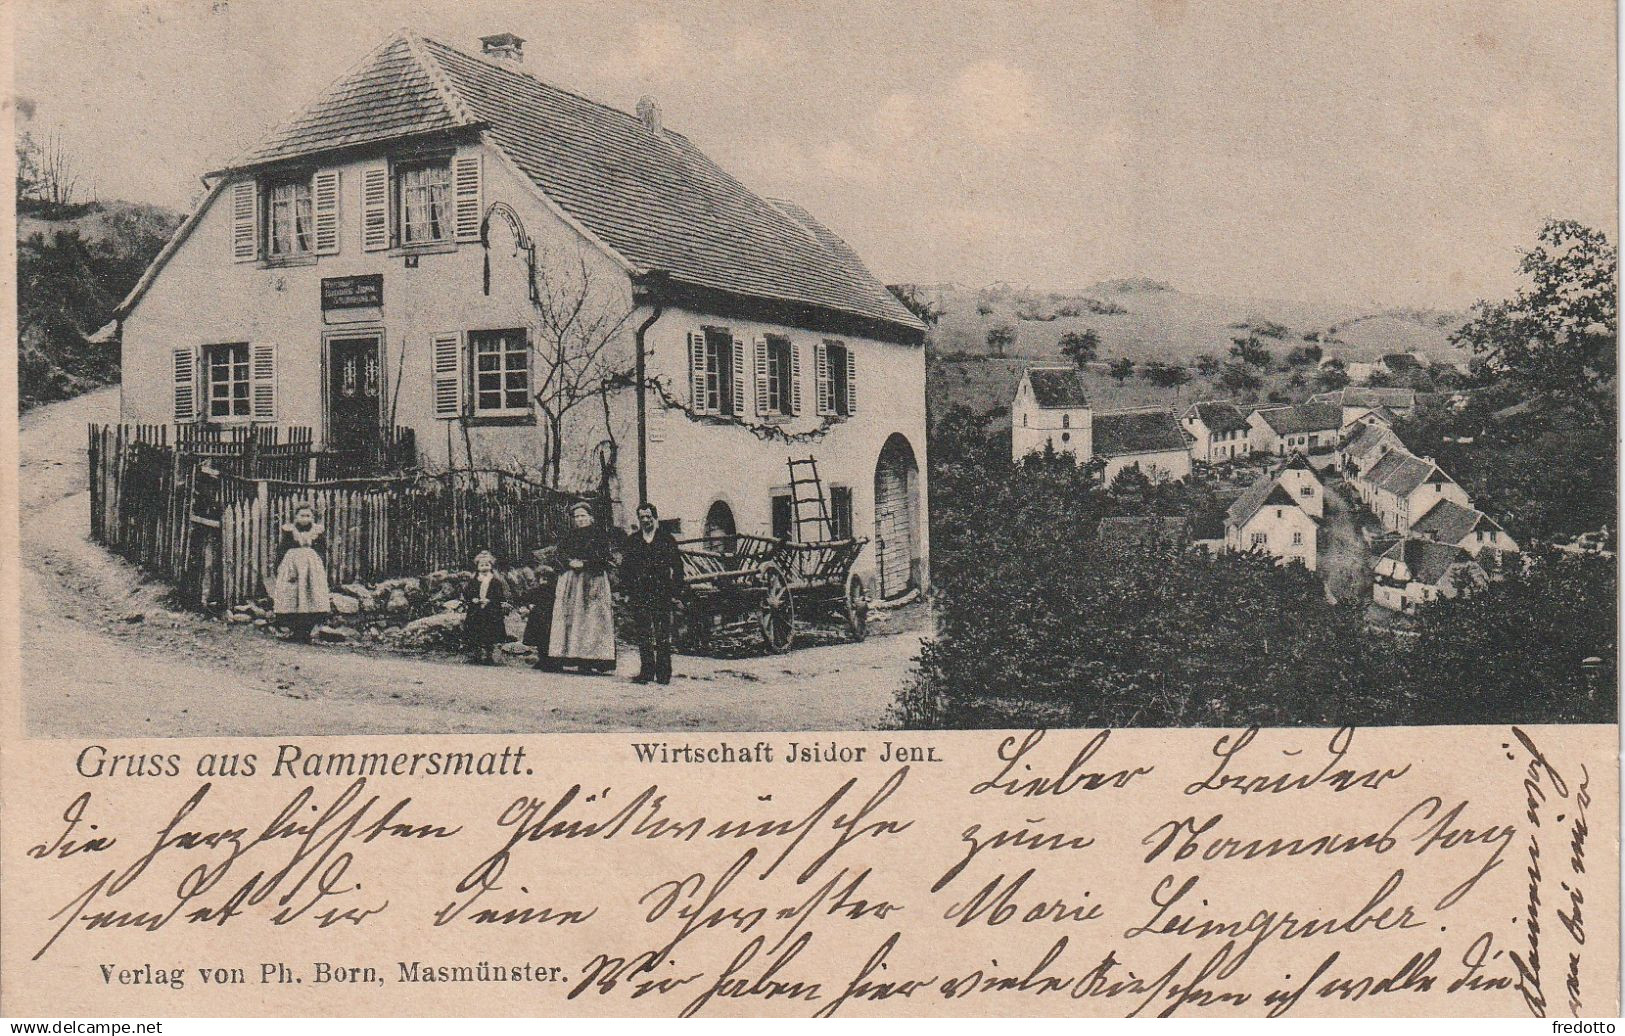 Gruss aus Rammersmatt.
Wirtschaft Jsidor Jenn
Lieber Bruder
die herzlichsten Glückwünsche zum Namenstag
sendet dir deine Schwester Marie Leimgruber.
Verlag von Ph. Born, Masmünster.
Wir haben hier viele Kirschen ich wolle die
wären bei
www.delcampe.net
fredotto